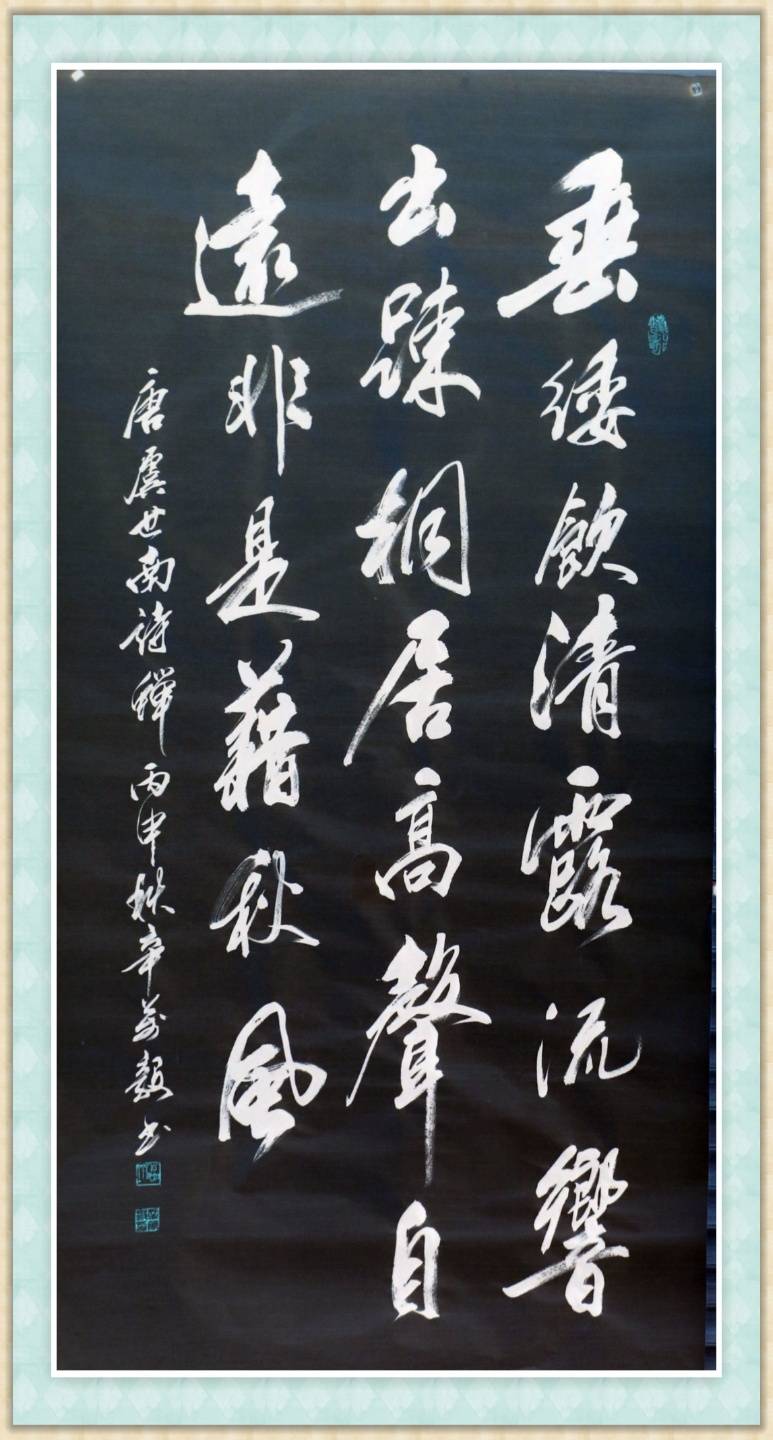 垂緌飲清露流響
出踈桐居高聲自
遠非是藉秋風
唐虞世南詩蟬丙申秋辛萬毅书